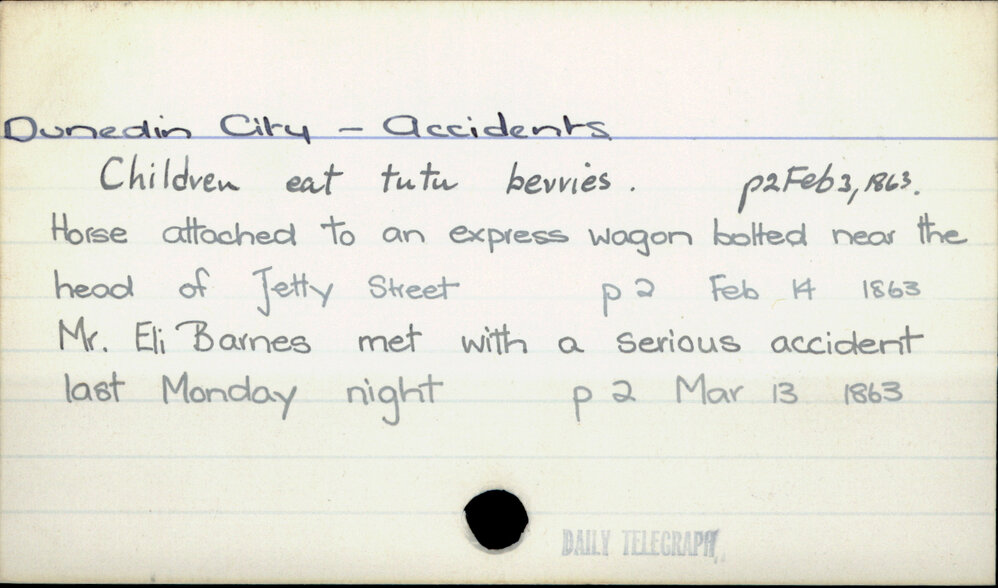 Dunedin City - Accidents
Children eat tutu berries. p2 Feb 3, 1863.
Horse attached to an express wagon bolted near the
head of Jetty Street p 2 Feb 14 1863
Mr. Eli Barnes met with a serious accident
last Monday night p 2 Mar 13 1863
DAILY TELEGRAPH